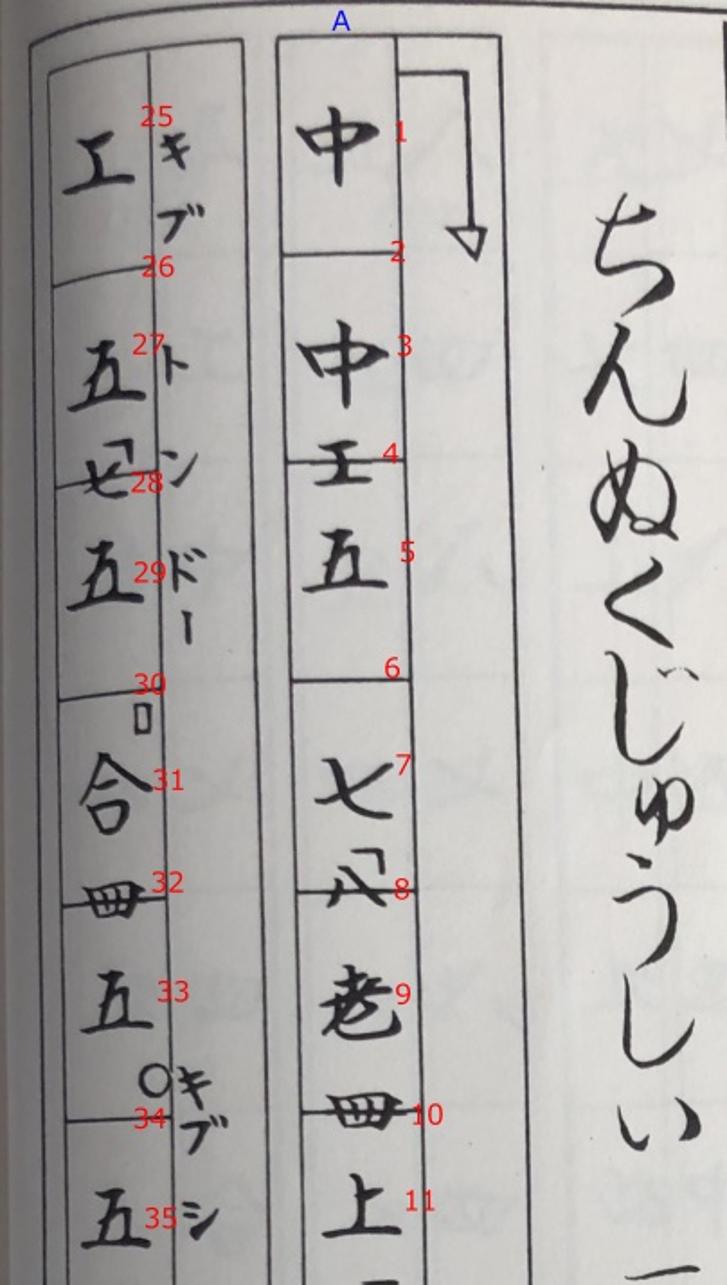 ちんぬくじゅうしい
A
1 2 3 4 5 6 7 8 9 10 11
中中工五七八老四上
25 26 27 28 29 30 31 32 33 34 35
キブトンドーキブシ
工五七五合四五〇五